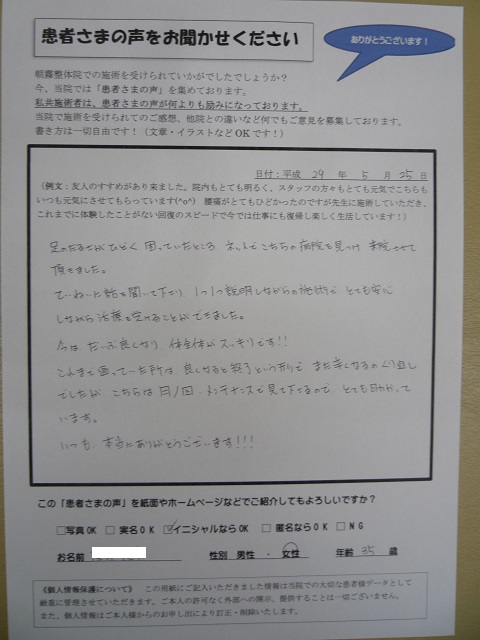 患者さまの声をお聞かせください
ありがとうございます！
朝霞整体院での施術を受けられていかがでしたでしょうか？
今、当院では「患者さまの声」を集めております。
私共施術者は、患者さまの声が何よりも励みになっております。
当院で施術を受けられてのご感想、他院との違いなど何でもご意見を募集しております。
書き方は一切自由です！（文章・イラストなどOKです！）
日付：平成 29 年 5 月 25 日
（例文：友人のすすめがあり来ました。院内もとても明るく、スタッフの方々もとても元気でこちらも
いつも元気にさせてもらっています(^o^) 腰痛がとてもひどかったのですが先生に施術していただき、
これまでに体験したことがない回復のスピードで今では仕事にも復帰し楽しく生活しています！）
足のだるさがひどく困っていたところ ネットでこちらの病院を見つけ 来院させて
頂きました。
ていねいに話を聞いて下さり、1つ1つ説明しながらの施術で とても安心
しながら治療を受けることができました。
今は だいぶ良くなり、体全体がスッキリです!!
これまで通っていた所は 良くなると終了という形で また辛くなるのくり返し
でしたが こちらは月1回、メンテナンスで見て下さるので、とても助かって
います。
いつも、本当にありがとうございます!!!
この「患者さまの声」を紙面やホームページなどでご紹介してもよろしいですか？
□写真OK □ 実名OK ☑イニシャルならOK □ 匿名ならOK □ NG
お名前 性別 男性 ・ 女性 年齢 35 歳
《個人情報保護について》 この用紙にご記入いただきました情報は当院での大切な患者様データとして
厳重に管理させていただきます。ご本人の許可なく外部への開示、提供することは一切ございません。
また、個人情報はご本人様からのお申し出により訂正・削除いたします。